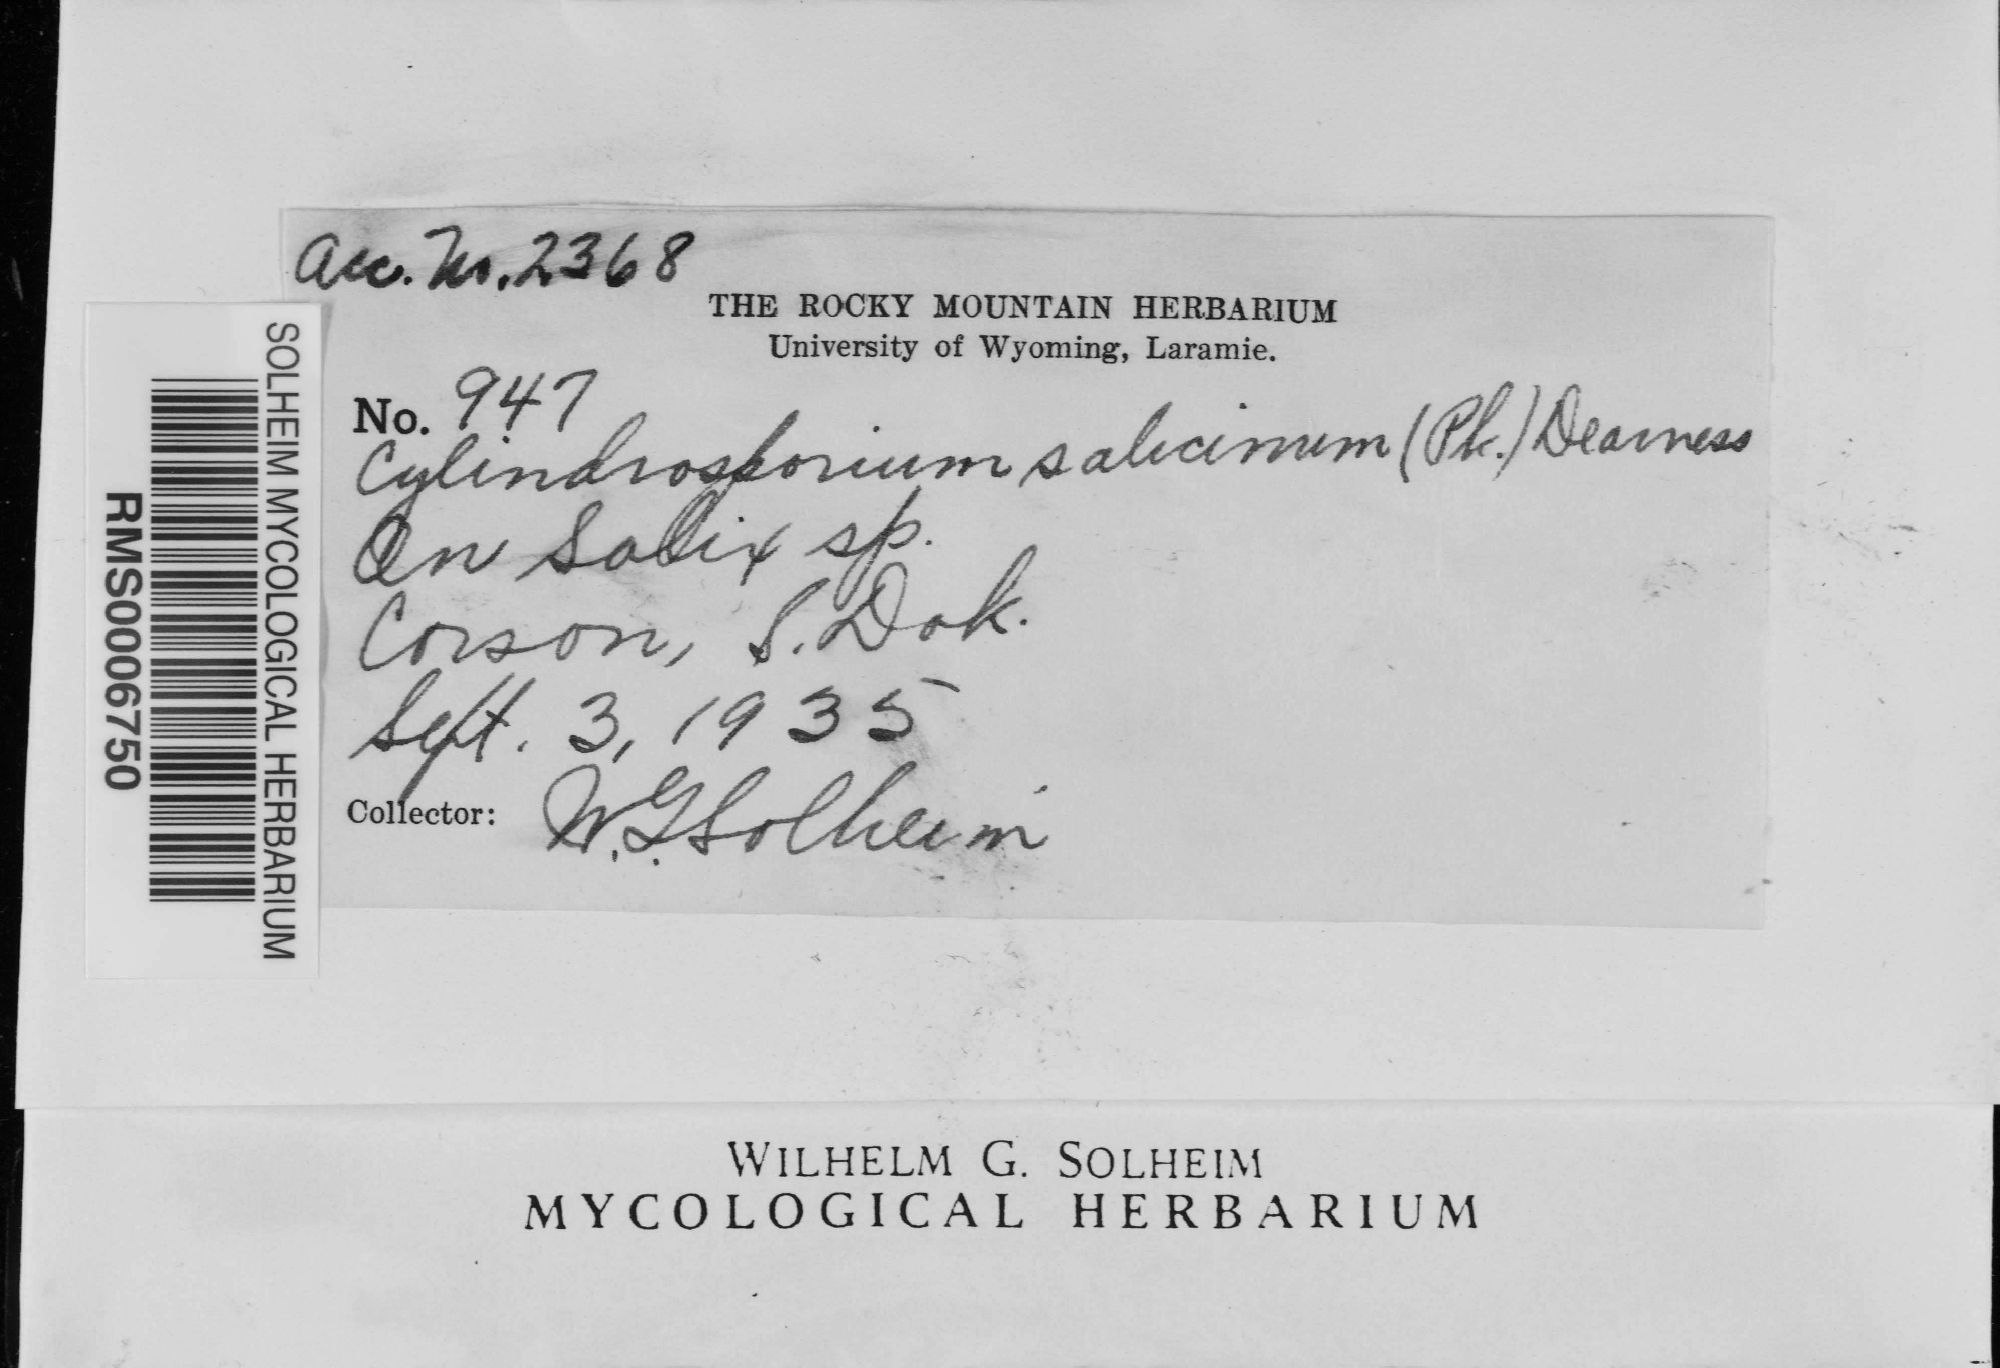 Acc. No. 2368
THE ROCKY MOUNTAIN HERBARIUM
University of Wyoming, Laramie.
No. 947
Cylindrosporium salicinum (Pk.) Dearness
On Salix sp.
Corson, S. Dak.
Sept. 3, 1935
Collector: W.G. Solheim
SOLHEIM MYCOLOGICAL HERBARIUM
RMS0006750
WILHELM G. SOLHEIM
MYCOLOGICAL HERBARIUM